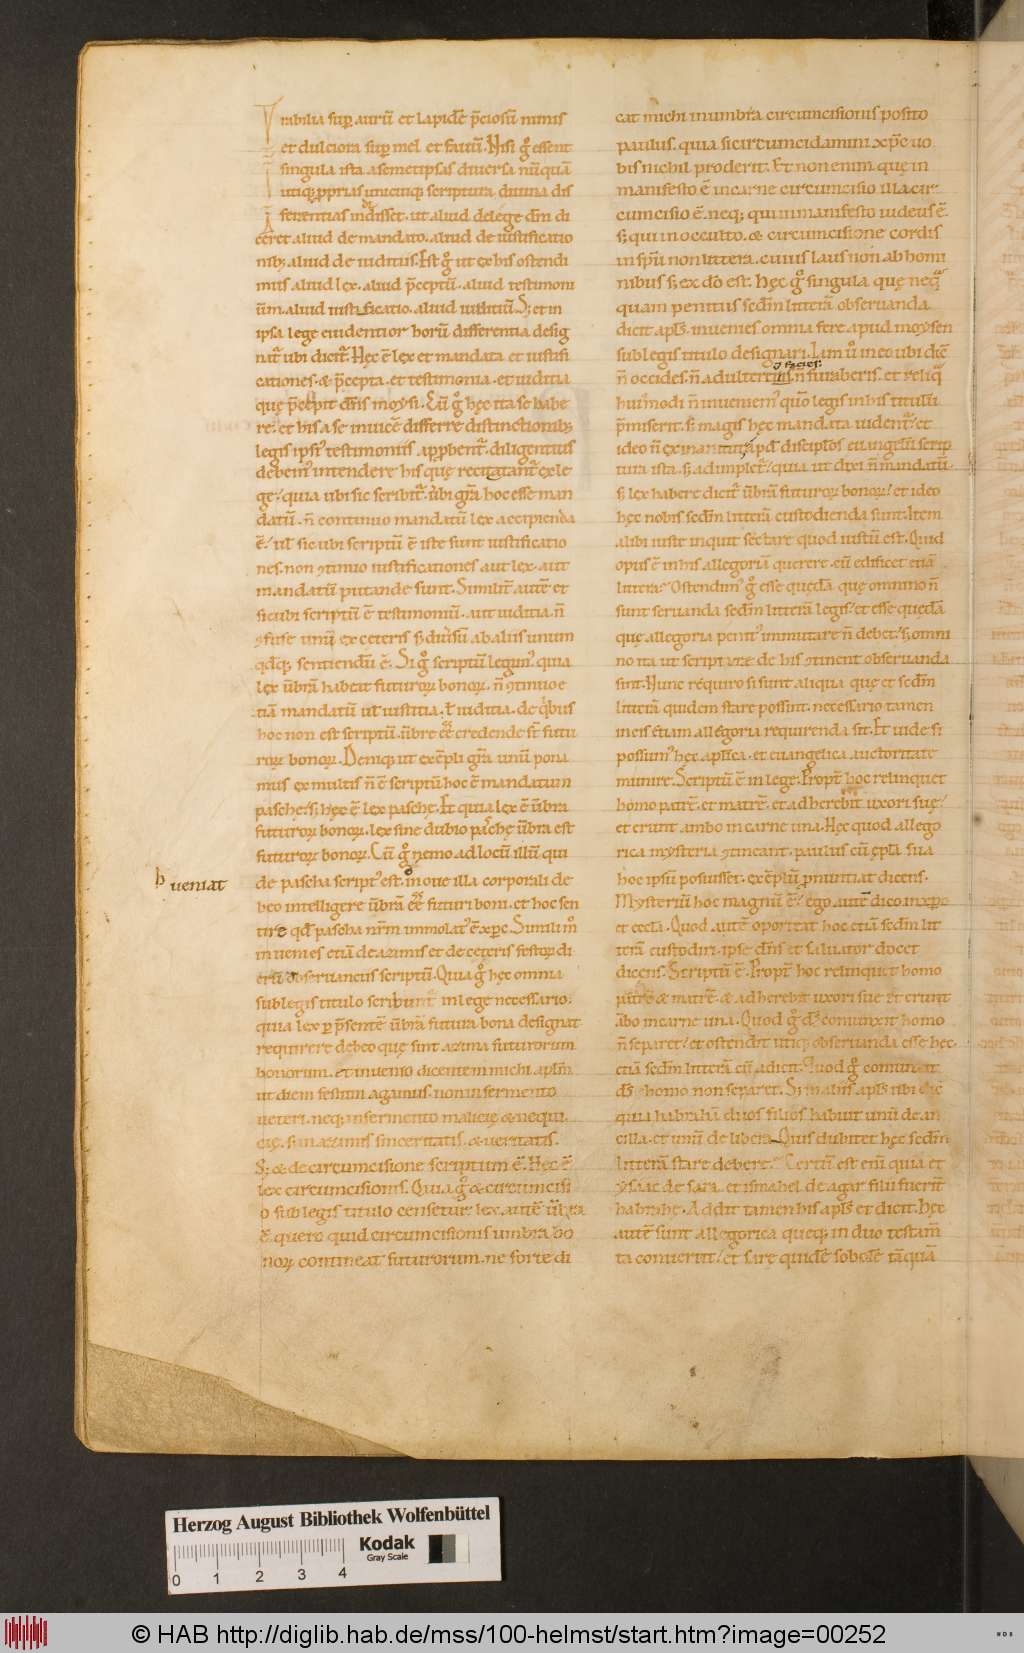 rabilia sup aurū et lapidē p̄ciosū nimis
et dulciora sup mel et fauū. Nisi g̊ essent
singula ista a semetipsis diuersa nūquā
utiq; pprias unicuiq; scriptura diuina dis
ferentias indidisset. ut aliud de lege dn̄i di
ceret. aliud de mandato. aliud de iustificatio
nib; aliud de iuditiis. Est g̊ ut ex his ostendi
mus aliud lex. aliud p̄ceptū. aliud testimoni
ūm. aliud iustificatio. aliud iuditiū. S; et in
ipsa lege euidentior horū differentia desig
nat̄ ubi dicit̄. Hęc ē lex et mandata et iustifi
cationes. & p̄cepta. et testimonia. et iuditia
quę p̄cepit dn̄s moysi. Cū g̊ hęc ita se habe
re. et his a se inuicē differre distinctionib;
legis ipsi' testimoniis app̱bent̄. diligentius
debem' intendere his quę recitātur ex le
ge. quia ubi sic scribit̄. ūbi gr̄a hoc esse man
datū. n̄ continuo mandatū lex accipienda
ē. ut̄ sic ubi scriptū ē iste sunt iustificatio
nes. non 9tinuo iustificationes aut lex. aut
mandatū putande sunt. Similit̄ autē et
sicubi scriptū ē testimoniū. aut iuditia. n̄
9fuse unū ex ceteris s; diuersū ab aliis unum
qdq; sentiendū ē. Si g̊ scriptū legim' quia
lex ūbrā habeat futuroꝝ bonoꝝ. n̄ 9tinuo e
tiā mandatū ut̄ iustitia. ut̄ iuditia. de qⁱbus
hoc non est scriptū. ūbre ēē credende st̄ futu
roꝝ bonoꝝ. Deniq; ut exēpli gr̄a unū pona
mus ex multis n̄ ē scriptū hoc ē mandatum
paschę. s; hęc ē lex paschę. Et quia lex ē ūbra
futuroꝝ bonoꝝ. lex sine dubio paschę ūbra est
futuroꝝ bonoꝝ. Cū g̊ uemo ad locū illū qui
ueniat
de pascha script' est. in oue illa corporali de
beo intelligere ūbrā ēē futuri boni. et hoc sen
tire qd̄ pascha nr̄m immolat' ē xp̄c. Simili m̊
inuenies etiā de azimis et de ceteris festoꝝ di
erū obseruanciis scriptū. Quia g̊ hęc omnia
sub legis titulo scribunt̄ in lege necessario.
quia lex p p̄sentē ūbrā futura bona designat
requirere debeo quę sint azima futurorum
bonorum. Et inuenio dicentem michi aplm̄
ut diem festum agamus. non in fermento
ueteri. neq; in fermento malicię & nequi
cię. s; in azimis sinceritatis. & ueritatis.
S; & de circumcisione scriptum ē. Hęc ē
lex circumcisionis. Quia g̊ & circumcisi
o sub legis titulo censetur lex autē ūbra
ē. quero quid circumcisionis umbra bo
noꝝ contineat futurorum. ne forte di
cat michi in umbra circumcisionis posito
paulus. quia si circumcidamini xp̄c uo
bis nichil proderit. Et non enim quę in
manifesto ē in carne circumcisio illa cir
cumcisio ē. neq; qui in manifesto iudeus ē.
s; qui in occulto. & circumcisione cordis
in spū non littera. cuius laus non ab homi
nibus s; ex do est. Hęc g̊ singula quę neq̄
quam penitus sedm̄ litterā obseruanda
dicit apls̄. inuenies omnia fere apud moysen
sub legis titulo designari. Iam ū in eo ubi dicit
n̄ occides. n̄ adulteriū facies. n̄ furaberis. et reliq̄
hui'modi n̄ inueniem' quō legis in his titulū
p̄miserit. s; magis hęc mandata uident̄. et
ideo n̄ exinanitur apd̄ discipl̄os euangelii scrip
tura ista. s; adimplet̄. quia ut dixi n̄ mandatū.
s; lex habere dicit̄ ūbrā futuroꝝ bonoꝝ. et ideo
hęc nobis sedm̄ litterā custodienda sunt. Item
alibi iuste inquit sectare quod iustū est. Quid
opus ē in his allegoriā querere. cū edificet etiā
littera? Ostendim' g̊ esse quędā quę omnino n̄
sunt seruanda sedm̄ litterā legis. et esse quędā
quę allegoria penit' immutare n̄ debet. s; omni
no ita ut scripturę de his 9tinent obseruanda
sint. Nunc requiro si sunt aliqua quę et sedm̄
litterā quidem stare possint. necessario tamen
in eis etiam allegoria requirenda sit. Et uide si
possum' hęc aplica. et euangelica auctoritate
munire. Scriptū ē in lege. Propt̄ hoc relinquet
homo patrē. et matrē. et adherebit uxori suę.
et erunt ambo in carne una. Hęc quod allego
rica mysteria 9tineant. paulus cū eccl̄a sua
hoc ipsū posuisset. exēplū pnuntiat dicens.
Mysteriū hoc magnū ē. ego autē dico in xpo
et eccl̄a. Quod autē oporteat hoc etiā sedm̄ lit
terā custodiri. ipse dn̄s et saluator docet
dicens. Scriptū ē. Propt̄ hoc relinquet homo
patrē & matrē. & adherebit uxori suę. et erunt
ābo in carne una. Quod g̊ ds̄ coniunxit homo
n̄ separet. et ostendit utiq; obseruanda esse hęc.
etiā sedm̄ litterā cū adicit. Quod g̊ coniunxit
ds̄. homo non separet. Similis apls̄ ubi dic̄
quia habrahā duos filios habuit unū de an
cilla. et unū de libera. Quis dubitet hęc sedm̄
litterā stare debere? Certū est eni quia et
ysaac de sara. et ismahel de agar filii fuerit̄
habrahę. Addit tamen his apls̄ et dicit. Hęc
autē sunt allegorica quęq; in duo testam̄
ta conuertit. et sarę quidē sobolē tāquā
Herzog August Bibliothek Wolfenbüttel
Kodak
Gray Scale
0 1 2 3 4
© HAB http://diglib.hab.de/mss/100-helmst/start.htm?image=00252